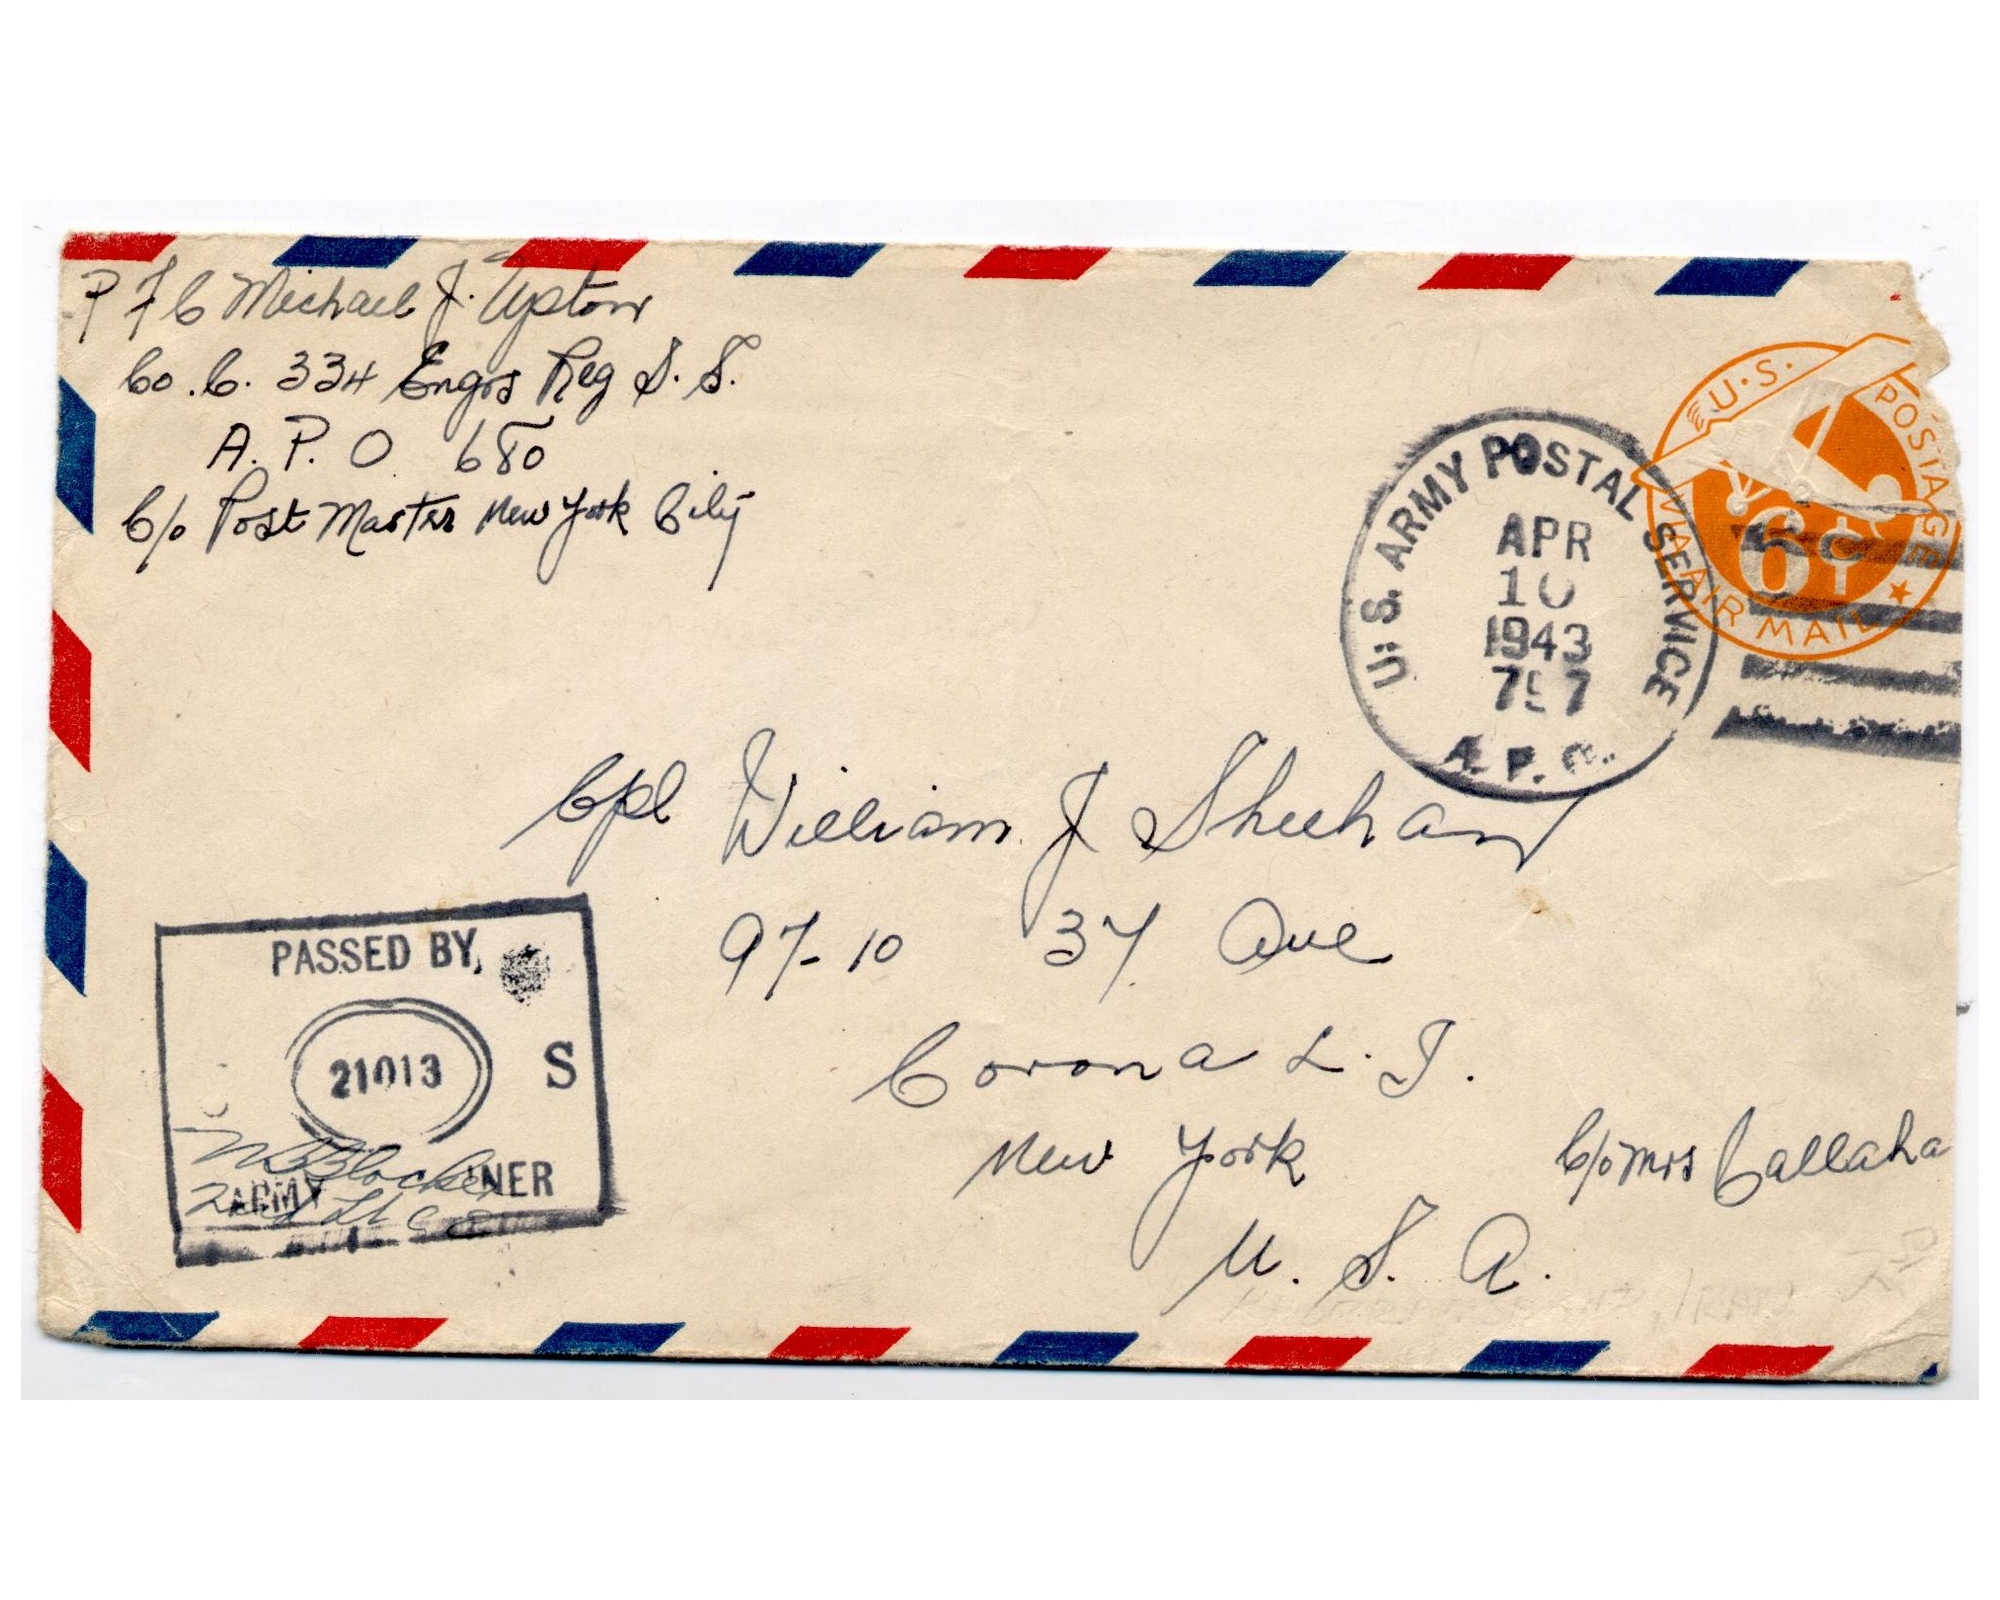 P F C Michael J. Upton
Co. C. 334 Engrs Reg S. S.
A. P. O. 680
C/o Post Master New York City
U.S. POSTAGE
VIA AIR MAIL
6¢
U.S. ARMY POSTAL SERVICE
APR
10
1943
A. P. O.
Cpl William J Sheehan
97-10 37 Ave
Corona L. I.
New York
C/o Mrs Callaha
U. S. A.
PASSED BY
21013
S
ARMY INER
2nd Lt C E
, IRAN